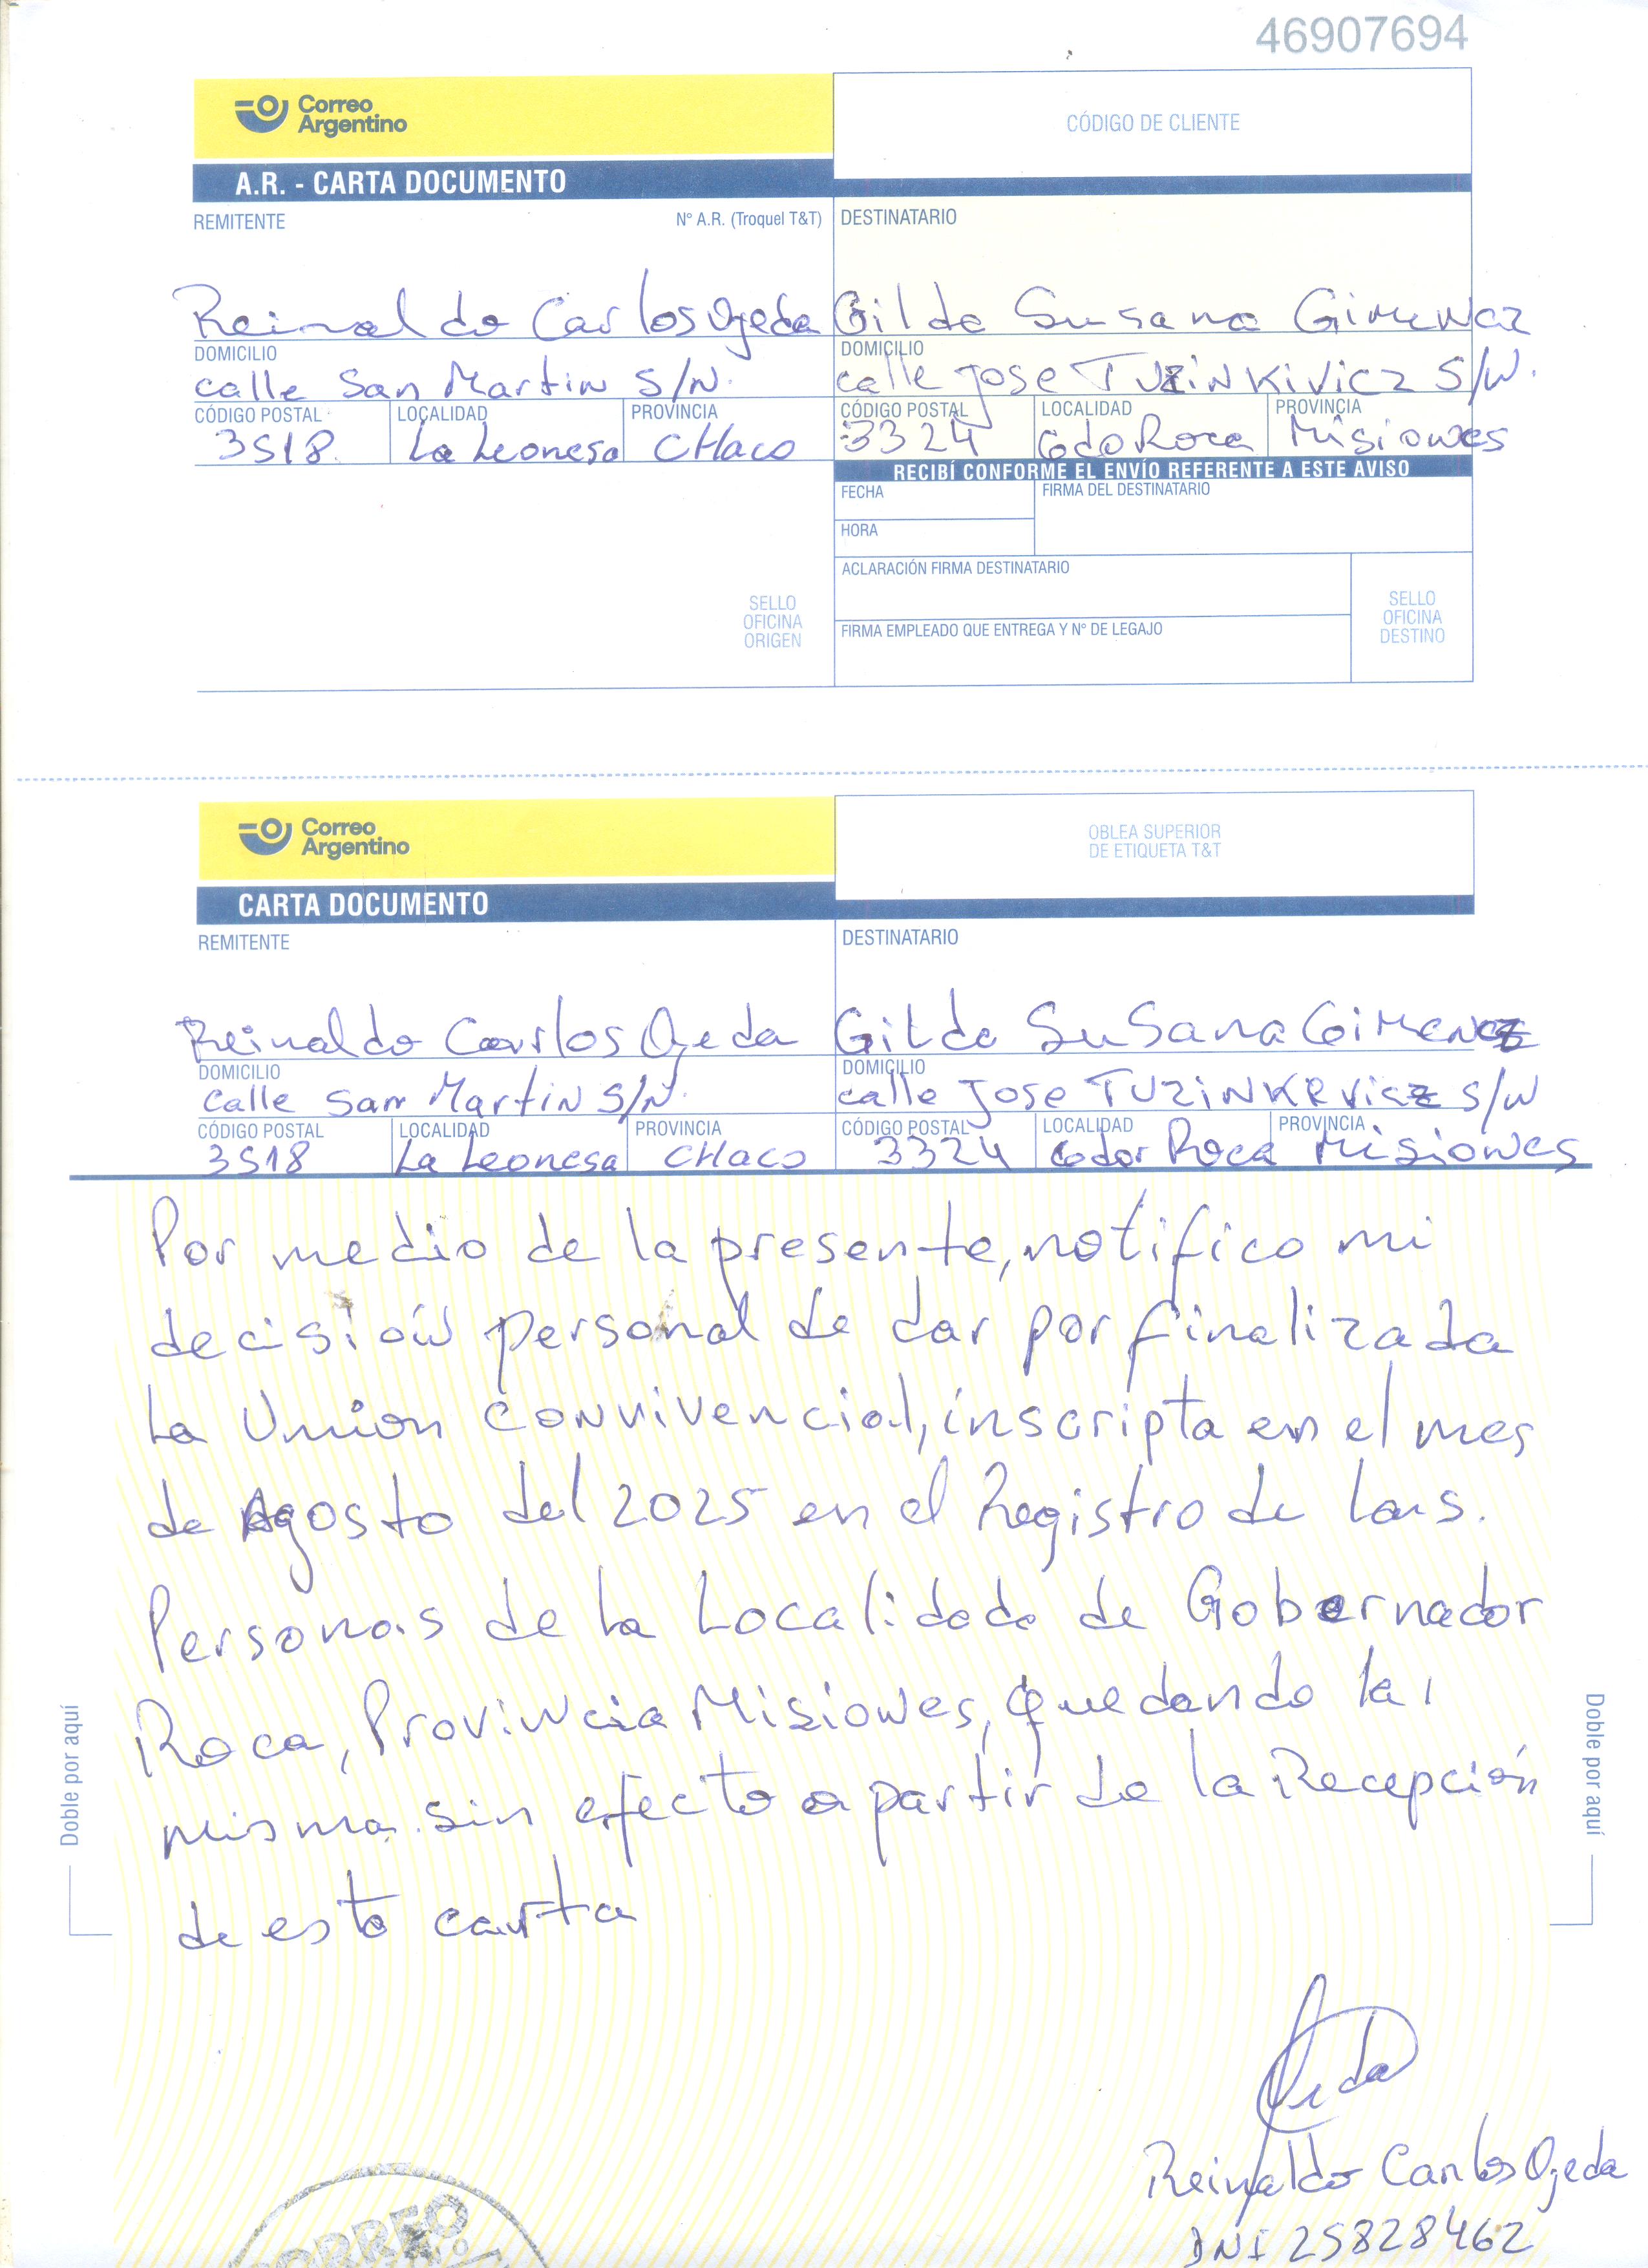 46907694
Correo
Argentino
CÓDIGO DE CLIENTE
A.R. - CARTA DOCUMENTO
REMITENTE
N° A.R. (Troquel T&T)
DESTINATARIO
Reinaldo Carlos Ojeda
Gilda Susana Gimenez
DOMICILIO
DOMICILIO
calle San Martin S/N.
calle Jose TUZiNKiViCZ S/N.
CÓDIGO POSTAL
LOCALIDAD
PROVINCIA
CÓDIGO POSTAL
LOCALIDAD
PROVINCIA
3518.
La Leonesa
CHaco
3324
Gdo Roca
Misiones
RECIBÍ CONFORME EL ENVÍO REFERENTE A ESTE AVISO
FECHA
FIRMA DEL DESTINATARIO
HORA
ACLARACIÓN FIRMA DESTINATARIO
SELLO
OFICINA
ORIGEN
FIRMA EMPLEADO QUE ENTREGA Y N° DE LEGAJO
SELLO
OFICINA
DESTINO
Correo
Argentino
OBLEA SUPERIOR
DE ETIQUETA T&T
CARTA DOCUMENTO
REMITENTE
DESTINATARIO
Reinaldo Carlos Ojeda
Gilda Susana Gimenez
DOMICILIO
DOMICILIO
calle San Martin S/N.
calle Jose TUZiNKeViCZ S/N
CÓDIGO POSTAL
LOCALIDAD
PROVINCIA
CÓDIGO POSTAL
LOCALIDAD
PROVINCIA
3518
La Leonesa
CHaco
3324
Gdor Roca
Misiones
Por medio de la presente, notifico mi
decisión personal de dar por finalizada
la Union convivencial, inscripta en el mes
de Agosto del 2025 en el Registro de las.
Personas de la Localidad de Gobernador
Roca, Provincia Misiones, quedando la
misma sin efecto a partir de la Recepción
de esta carta
Doble por aquí
Doble por aquí
Ojeda
Reinaldo Carlos Ojeda
DNI 25828462
CORREO